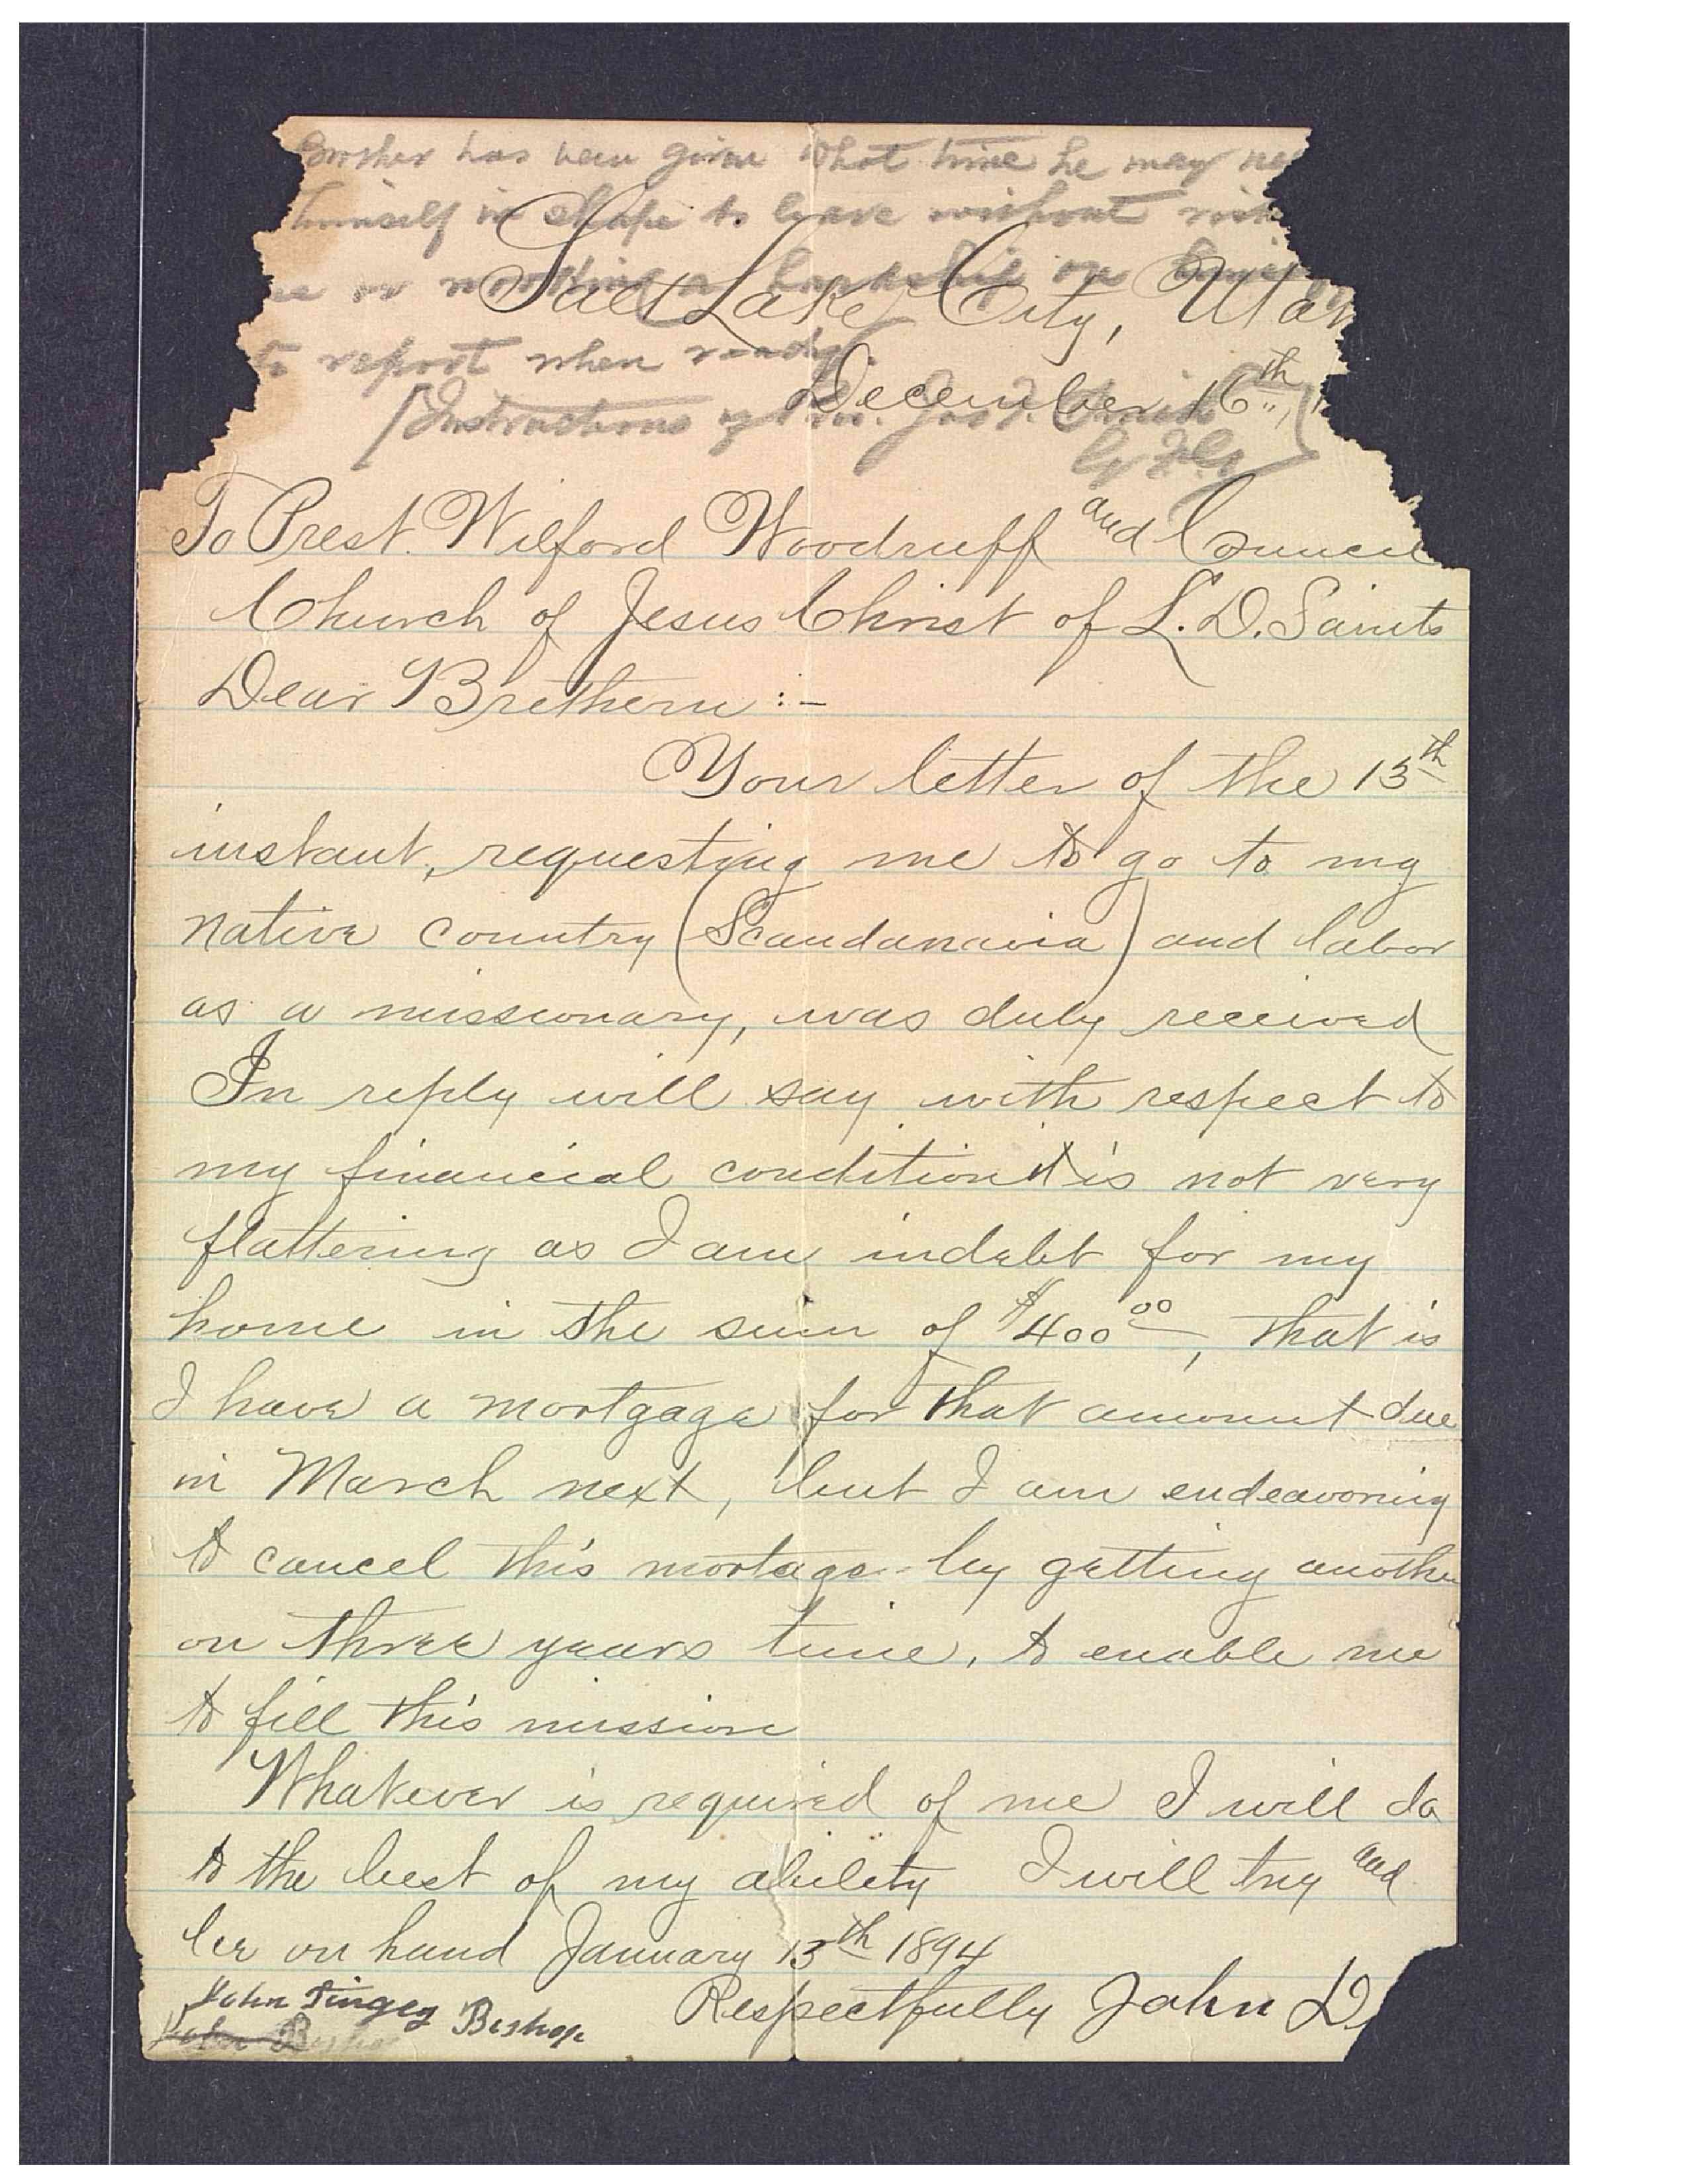 Brother has been given what time he may
himself in shape to leave without
or working a hardship on
to report when ready.
[Instructions of Jos. F. Smith
G. F. G.]
Salt Lake City, Utah
December 16th,
To Prest. Wilford Woodruff and Council
Church of Jesus Christ of L. D. Saints
Dear Brethern :-
Your letter of the 13th
instant, requesting me to go to my
native country (Scandanavia) and labor
as a missionary, was duly received
In reply will say with respect to
my financial condition it is not very
flattering as I am indebt for my
home in the sum of $400.00, that is
I have a mortgage for that amount due
in March next, but I am endeavoring
to cancel this mortage by getting another
on three years time, to enable me
to fill this mission
Whatever is required of me I will do
to the best of my ability I will try and
be on hand January 13th 1894
Respectfully John D
John Tingey Bishop
John